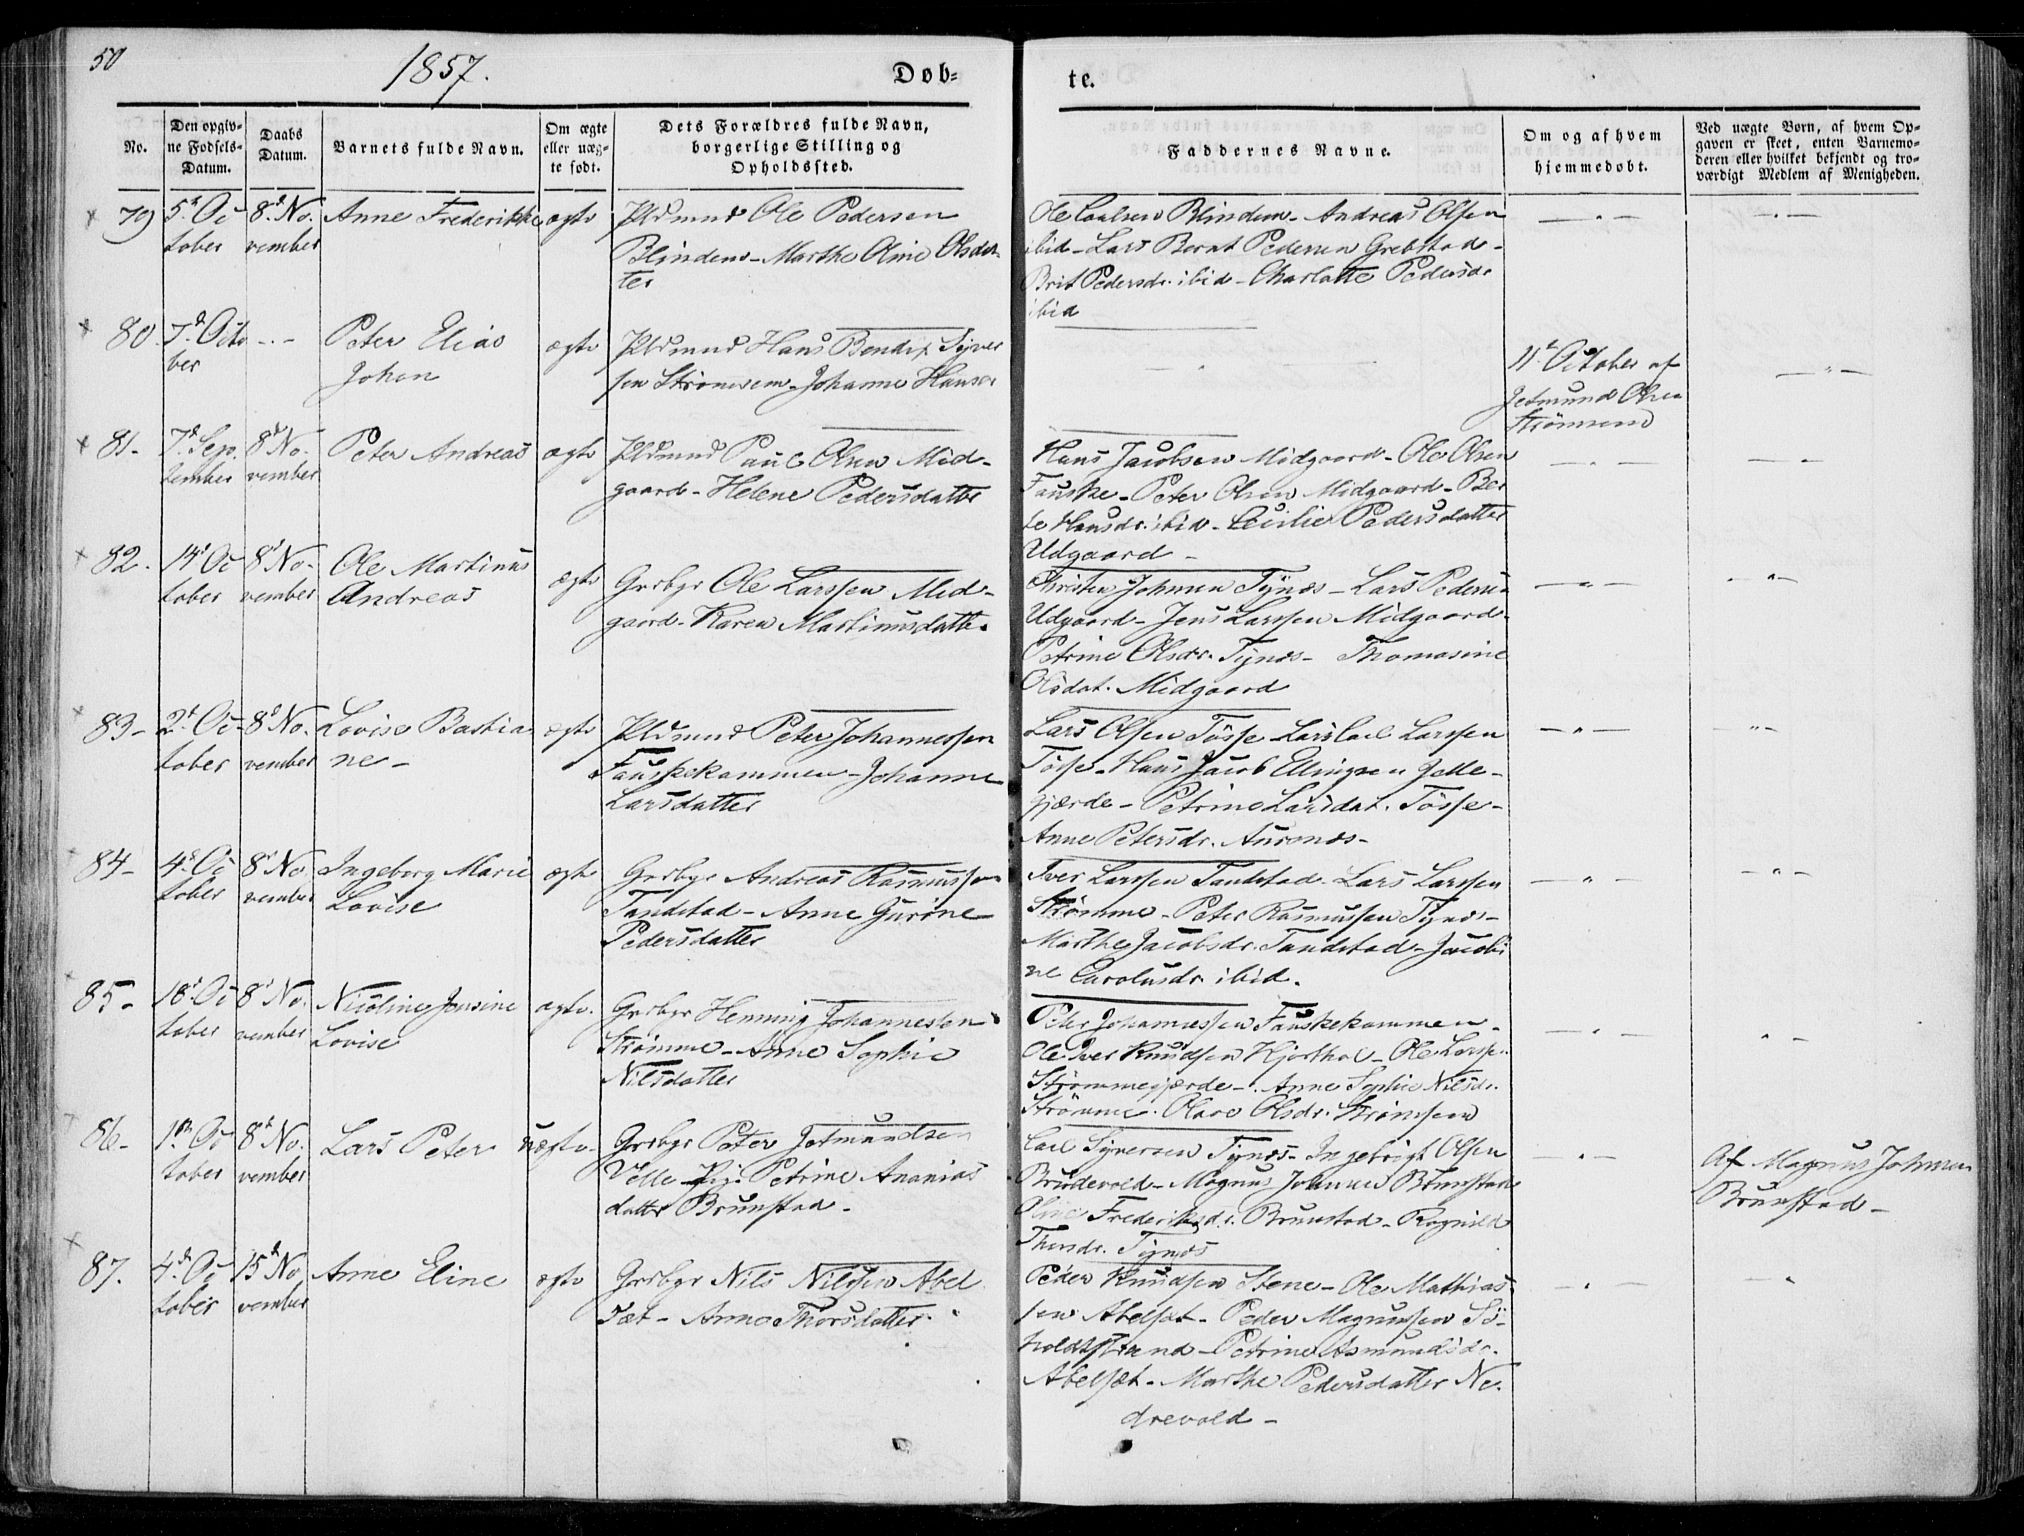 50
1857.
Døb-
te.
No.
Den opgiv-
ne Fødsels-
Datum.
Daabs
Datum.
Barnets fulde Navn.
Om ægte
eller uæg-
te født.
Dets Forældres fulde Navn,
borgerlige Stilling og
Opholdssted.
Faddernes Navne.
Om og af hvem
hjemmedøbt.
Ved uægte Børn, af hvem Op-
gaven er skeet, enten Barnemo-
deren eller hvilket bekjendt og tro-
værdigt Medlem af Menigheden.
79 5t Oc
tober
8d No.
vember
Anne Frederikke
ægte
Pldmnd Ole Pedersen
Blindem - Marthe Oline Olsdat
ter
Ole Blindem - Andreas Olsen
ibid - Lars Bernt Pedersen Grebstad -
Brit Pedersdr. ibid - Charlotte Pedersdr
ibid
80. 7d Octo
ber
Peter Elias
Johan
ægte
Pldmnd Hans Bendix Syver
sen Strømsem - Johanne Hansdr
11t October af
Jetmund Olsen
Strømsem
81. 7d Sep
tember
8d No-
vember
Peter Andreas
ægte
Pldmnd Paul Olsen Mid-
gaard - Helene Pedersdatter
Hans Jacobsen Midgaard - Ole Olsen
Fauske - Peter Olsen Midgaard - Ber
te Hansdr. ibid - Cecilie Pedersdatter
Udgaard -
82. 14d Oc
tober
8d No-
vember
Ole Martinus
Andreas
ægte
Grdbgr Ole Larssen Mid-
gaard - Karen Martinusdatter
Christen Johnsen Tynes - Lars Pedersen
Udgaard - Jens Larssen Midgaard -
Petrine Olsdr. Tynes - Thomasine
Olsdat. Midgaard
83 - 2d Oc-
tober
8d No.
vember
Lovise Bastia
ne -
ægte
Pldmnd Peter Johannessen
Fauskekammen - Johanne
Larsdatter
Lars Olsen Tøsse Lars Larssen
Tøsse - Hans Jacob Ellingsen Jelle-
gjærde - Petrine Larsdat. Tøsse -
Anne Petersdr. Aurenes -
84 - 4d Oc
tober
8d No
vember
Ingeborg Marie
Lovise
ægte
Grdbgr Andreas Rasmussen
Tandstad - Anne Gurine
Pedersdatter
Iver Larssen Tandstad - Lars Larssen
Strømme - Peter Rasmussen Tynes -
Marthe Jacobsdr. Tandstad - Jacobi
ne Carolusdr ibid.
85 - 18d Oc
tober
8d No.
vember
Nicoline Jensine
Lovise
ægte.
Grdbgr Henning Johannessen
Strømme - Anne Sophie
Nilsdatter
Peter Johannessen Fauskekammen -
Ole Iver Knudsen Hjorthol - Ole Larss.
Strømmegjærde - Anne Sophie Nilsdr.
Strømme. Olave Olsdr. Strømsem
86 - 1st Oc
tober
8d No.
vember
Lars Peter
uægte -
Grdbgr Peter Jetmundsen
Velle - Pige Petrine Ananias
datter Brunstad -
Carl Syversen Tynes - Ingebrigt Olsen
Brudevold - Magnus Johnsen Brunstad
Oline Frederiksdr. Brunstad - Ragnild
Thorsdr. Tynes
Af Magnus Johnsen
Brunstad -
87. 4d Oc
tober
15d No
vember
Anne Eline
ægte
Grdbgr Nils Nilssen Abel
sæt - Anne Thorsdatter.
Peder Knudsen Stene - Ole Mathias
sen Abelsæt - Peder Magnussen Sø-
holdtstrand - Petrine Asmundsdr.
Abelsæt - Marthe Pedersdatter Ne-
drevold -